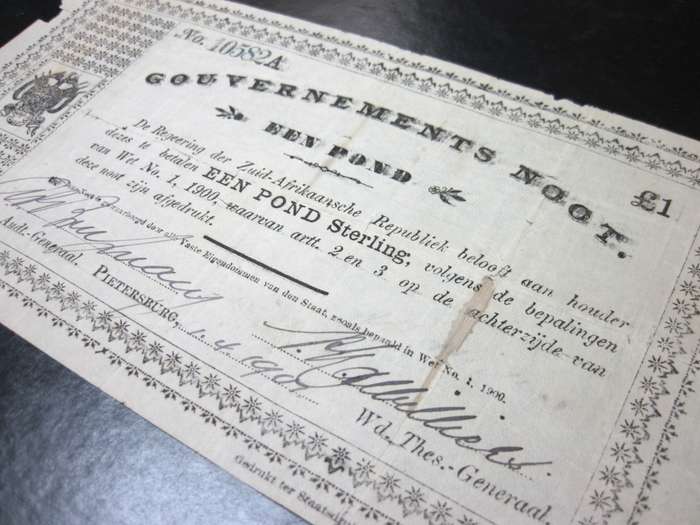 No. 10582A
GOUVERNEMENTS NOOT.
EEN POND
£1
De Regeering der Zuid-Afrikaansche Republiek belooft aan houder
dezes te betalen EEN POND Sterling, volgens de bepalingen
van Wet No. 1, 1900, waarvan artt. 2 en 3 op de achterzijde van
deze noot zijn afgedrukt.
door alle Vaste Eigendommen van den Staat, zooals bepaald in Wet No. 1, 1900.
Audt.-Generaal.
PIETERSBURG,
Wd. Thes.-Generaal
Gedrukt ter